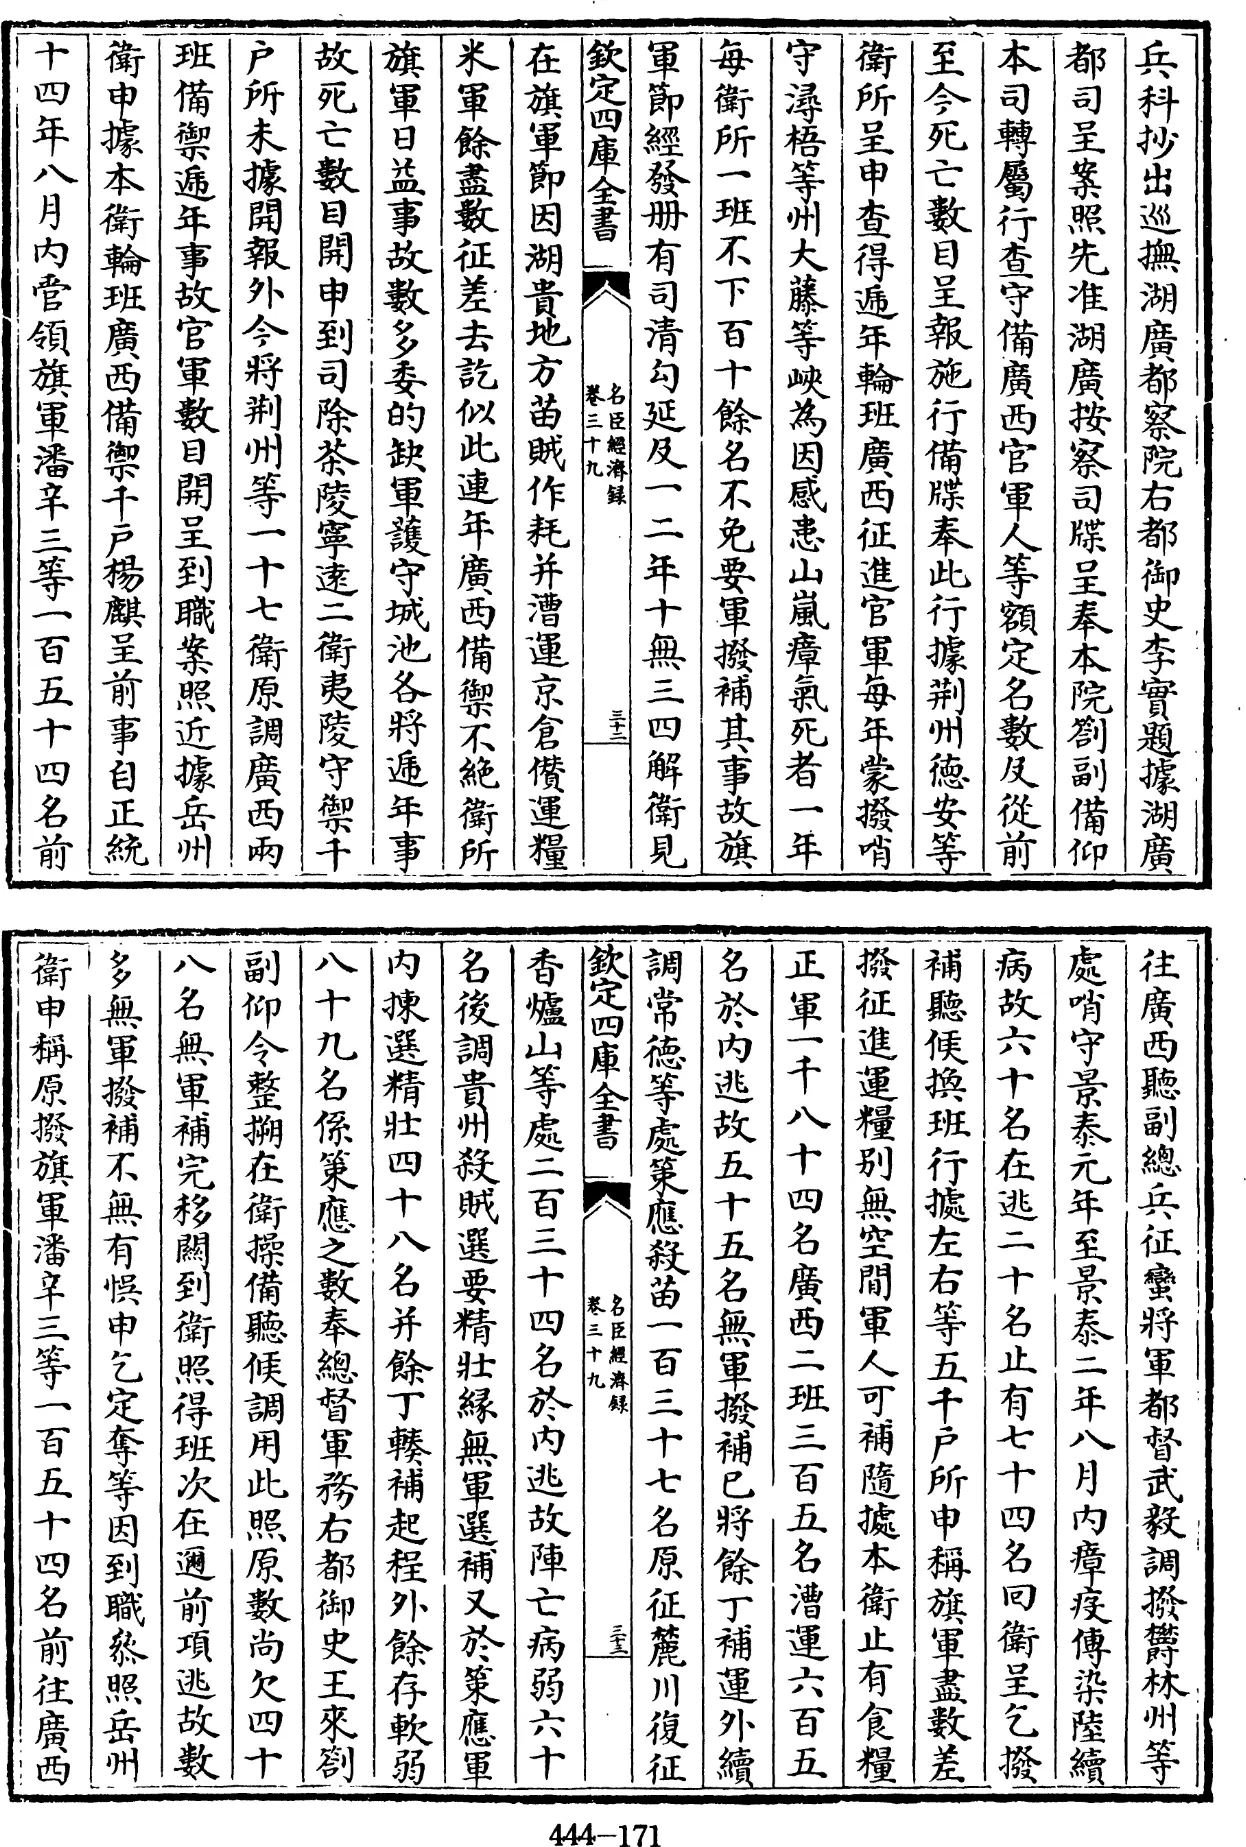 兵科抄出巡撫湖廣都察院右都御史李實題據湖廣
都司呈案照先准湖廣按察司牒呈奉本院劄副備仰
本司轉屬行查守備廣西官軍人等額定名數及從前
至今死亡數目呈報施行備牒奉此行據荆州徳安等
衛所呈申查得逓年輪班廣西征進官軍每年蒙撥哨
守潯梧等州大藤等峽為因感患山嵐瘴氣死者一年
每衛所一班不下百十餘名不免要軍撥補其事故旗
軍節經發册有司清勾延及一二年十無三四解衛見
欽定四庫全書
名臣經濟録
卷三十九
三十二
在旗軍節因湖貴地方苗賊作耗并漕運京倉儹運糧
米軍餘盡數征差去訖似此連年廣西備禦不絶衛所
旗軍日益事故數多委的缺軍護守城池各將逓年事
故死亡數目開申到司除茶陵寧逺二衛夷陵守禦千
户所未據開報外今將荆州等一十七衛原調廣西兩
班備禦逓年事故官軍數目開呈到職案照近據岳州
衛申據本衛輪班廣西備禦千户楊麒呈前事自正統
十四年八月内管領旗軍潘辛三等一百五十四名前
往廣西聽副總兵征蠻將軍都督武毅調撥欝林州等
處哨守景泰元年至景泰二年八月内瘴疫傳染陸續
病故六十名在逃二十名止有七十四名回衛呈乞撥
補聽候換班行據左右等五千户所申稱旗軍盡數差
撥征進運糧别無空間軍人可補隨據本衛止有食糧
正軍一千八十四名廣西二班三百五名漕運六百五
名於内逃故五十五名無軍撥補已將餘丁補運外續
調常徳等處策應殺苗一百三十七名原征麓川復征
欽定四庫全書
名臣經濟録
卷三十九
三十三
香爐山等處二百三十四名於内逃故陣亡病弱六十
名後調貴州殺賊選要精壯縁無軍選補又於策應軍
内揀選精壯四十八名并餘丁輳補起程外餘存軟弱
八十九名係策應之數奉總督軍務右都御史王來劄
副仰令整搠在衛操備聽候調用此照原數尚欠四十
八名無軍補完移關到衛照得班次在邇前項逃故數
多無軍撥補不無有悮申乞定奪等因到職叅照岳州
衛申稱原撥旗軍潘辛三等一百五十四名前往廣西
444—171